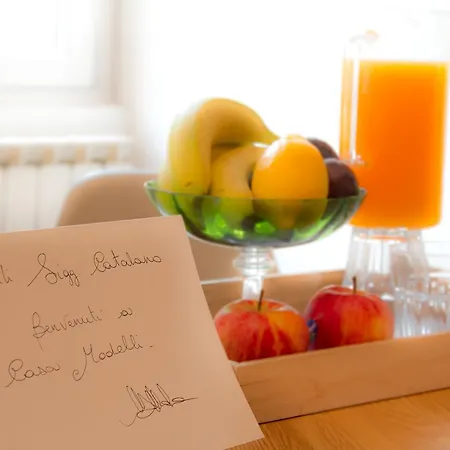 Sigg Catalano
Benvenuti a
Casa Modelli.